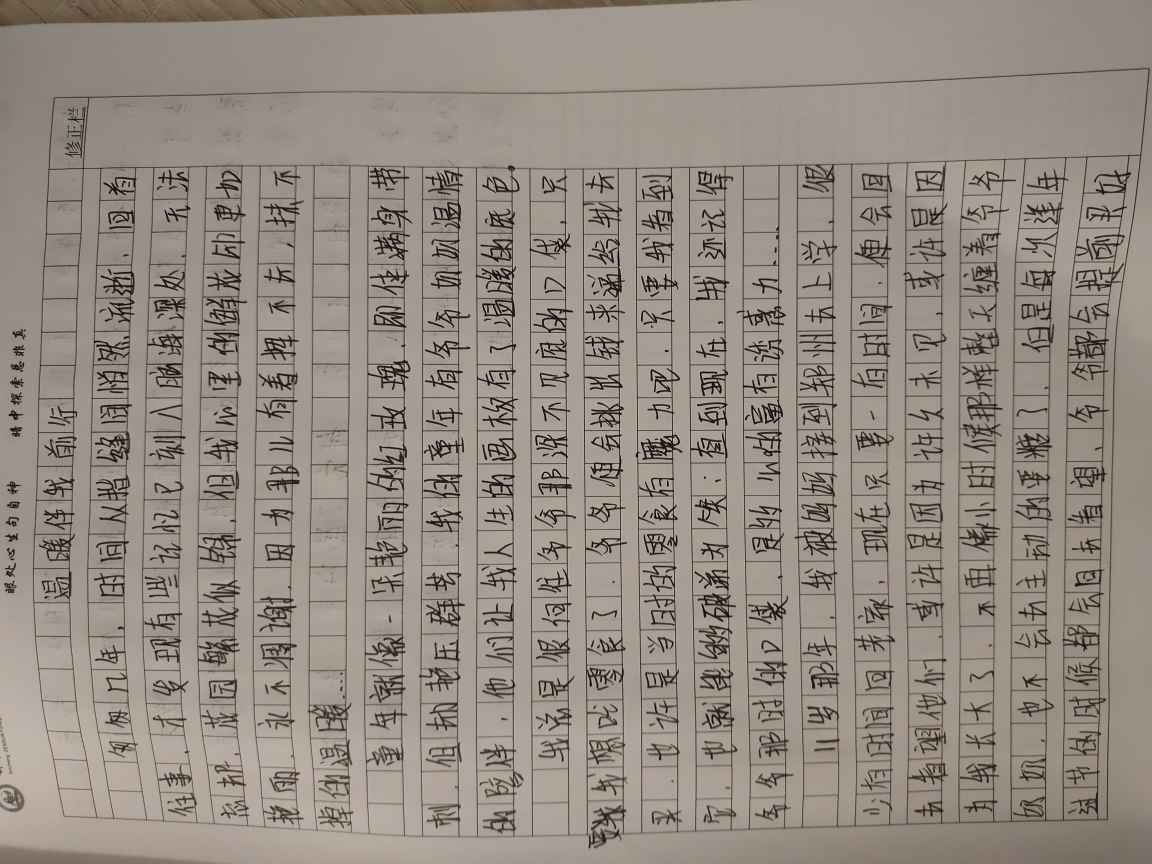 眼处心生句自神 暗中探索总非真
修正栏
温暖伴我前行
匆匆几年，时间从指缝间悄然流逝，回首
往事，才发现有些记忆已刻入脑海深处，无法
忘却，花园繁花似锦，但我心里的鲜花却更加
艳丽，永不凋谢，因为那儿有着挥不去，抹不
掉的温暖……
童年就像一朵艳丽的红玫瑰，即使满身带
刺，但却艳压群芳，我的童年有爷爷奶奶温情
的陪伴，他们让我人生的画板有了温暖的底色。
我总是很向往爷爷那深不见底的口袋，只
要我想吃零食了，爷爷便会掏出钱来递给我去
买，也许是当时的零食有魔力吧，只要我看到
它，也就能
爷爷那时的口袋，是多么的富有诱惑力……
11岁那年，我被妈妈接到郑州去上学，很
少有时间回老家，现在只要一有时间，便会回
去看望他们，或许是因为许久未见，或许是因
为我长大了，不再像小时候那样整天缠着爷爷
奶奶，也不会去主动的要糖了，但是每次逢年
过节的时候都会回去看望，爷爷都会提前买好